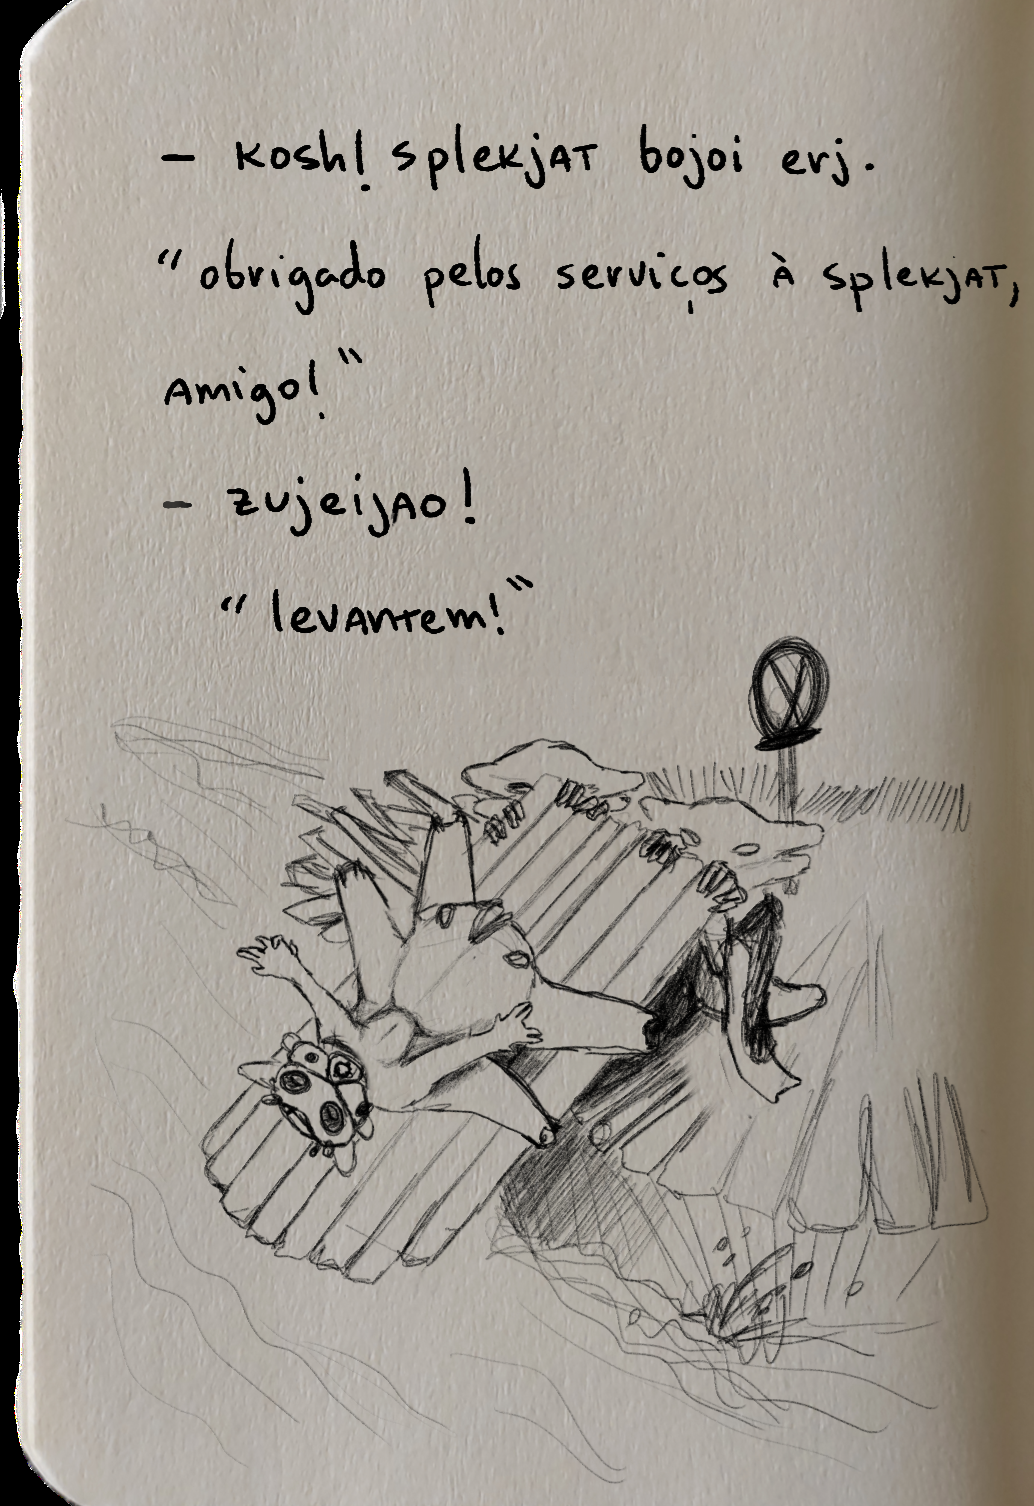 - Kosh! splekjat bojoi erj.
“obrigado pelos serviços à splekjat,
Amigo!”
- zujeijao!
“levantem!”